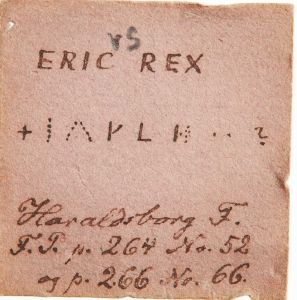 vs
ERIC REX
+ I Λ V L H ... ?
Haraldsborg F.
F.T. p. 264 No. 52
og p. 266 No. 66.